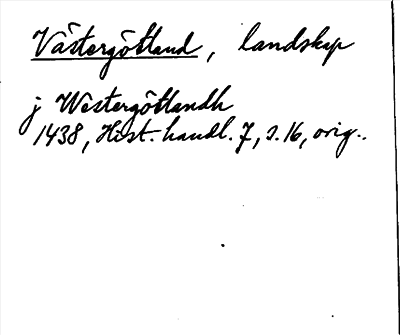 Västergötland, landskap
j Westergötlandh
1438, Hist. handl. 7, s. 16, orig..